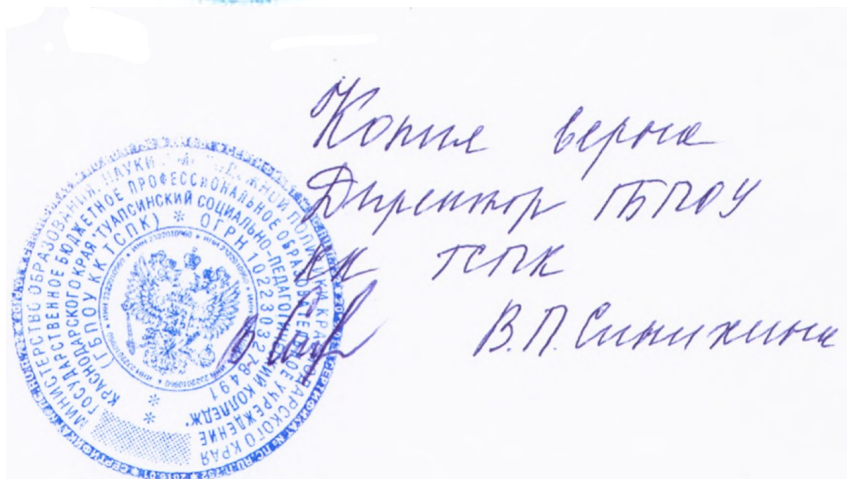 Копия верна
Директор ГБПОУ
КК ТСПК
В.П. Синихина
МИНИСТЕРСТВО ОБРАЗОВАНИЯ, НАУКИ И МОЛОДЕЖНОЙ ПОЛИТИКИ КРАСНОДАРСКОГО КРАЯ
ГОСУДАРСТВЕННОЕ БЮДЖЕТНОЕ ПРОФЕССИОНАЛЬНОЕ ОБРАЗОВАТЕЛЬНОЕ УЧРЕЖДЕНИЕ
КРАСНОДАРСКОГО КРАЯ "ТУАПСИНСКИЙ СОЦИАЛЬНО-ПЕДАГОГИЧЕСКИЙ КОЛЛЕДЖ"
(ГБПОУ КК ТСПК) * ОГРН 1022303278491 *